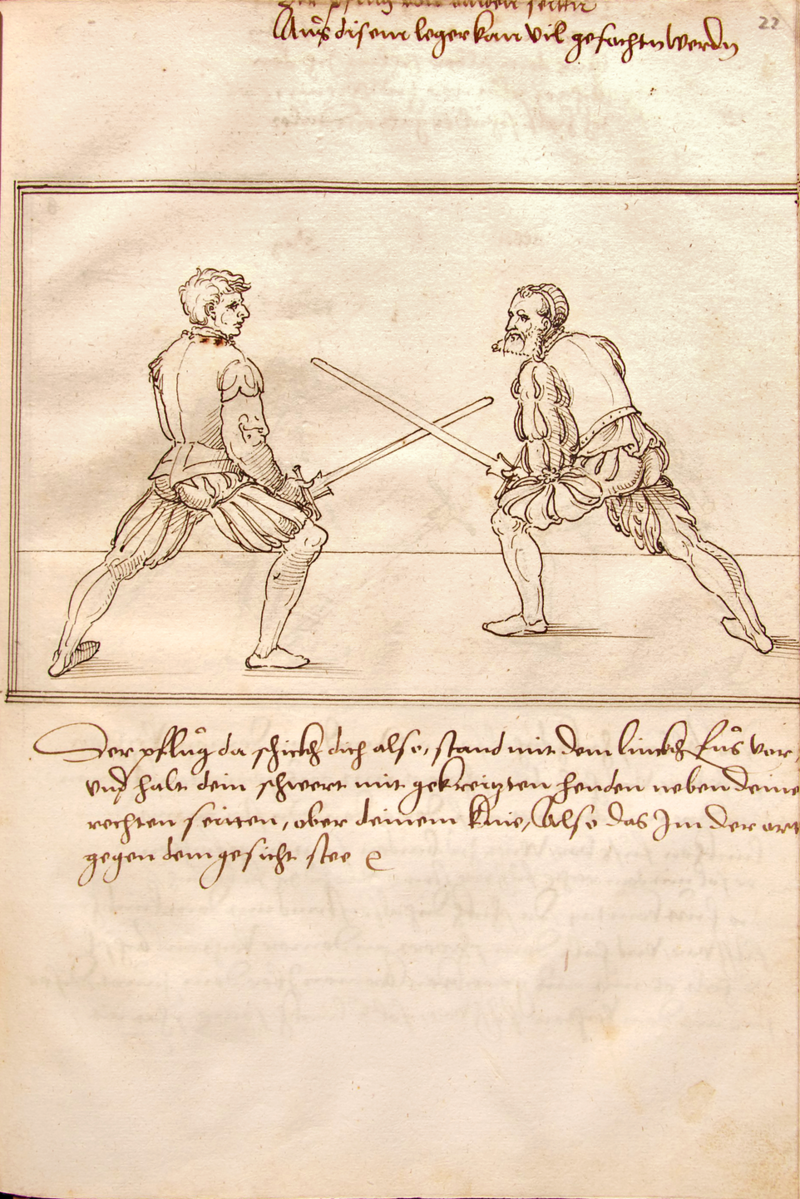 Die pflug von baiden seitten
Aus disem leger kan vil gefochtn werdn
22
Der pflug da schickh dich also, stand mit dem linckh fus vor,
vnd halt dein schwert mit gekreitzten henden neben deine
rechten seitten, ober deinem knie, also das Im der ort
gegen dem gesicht stee